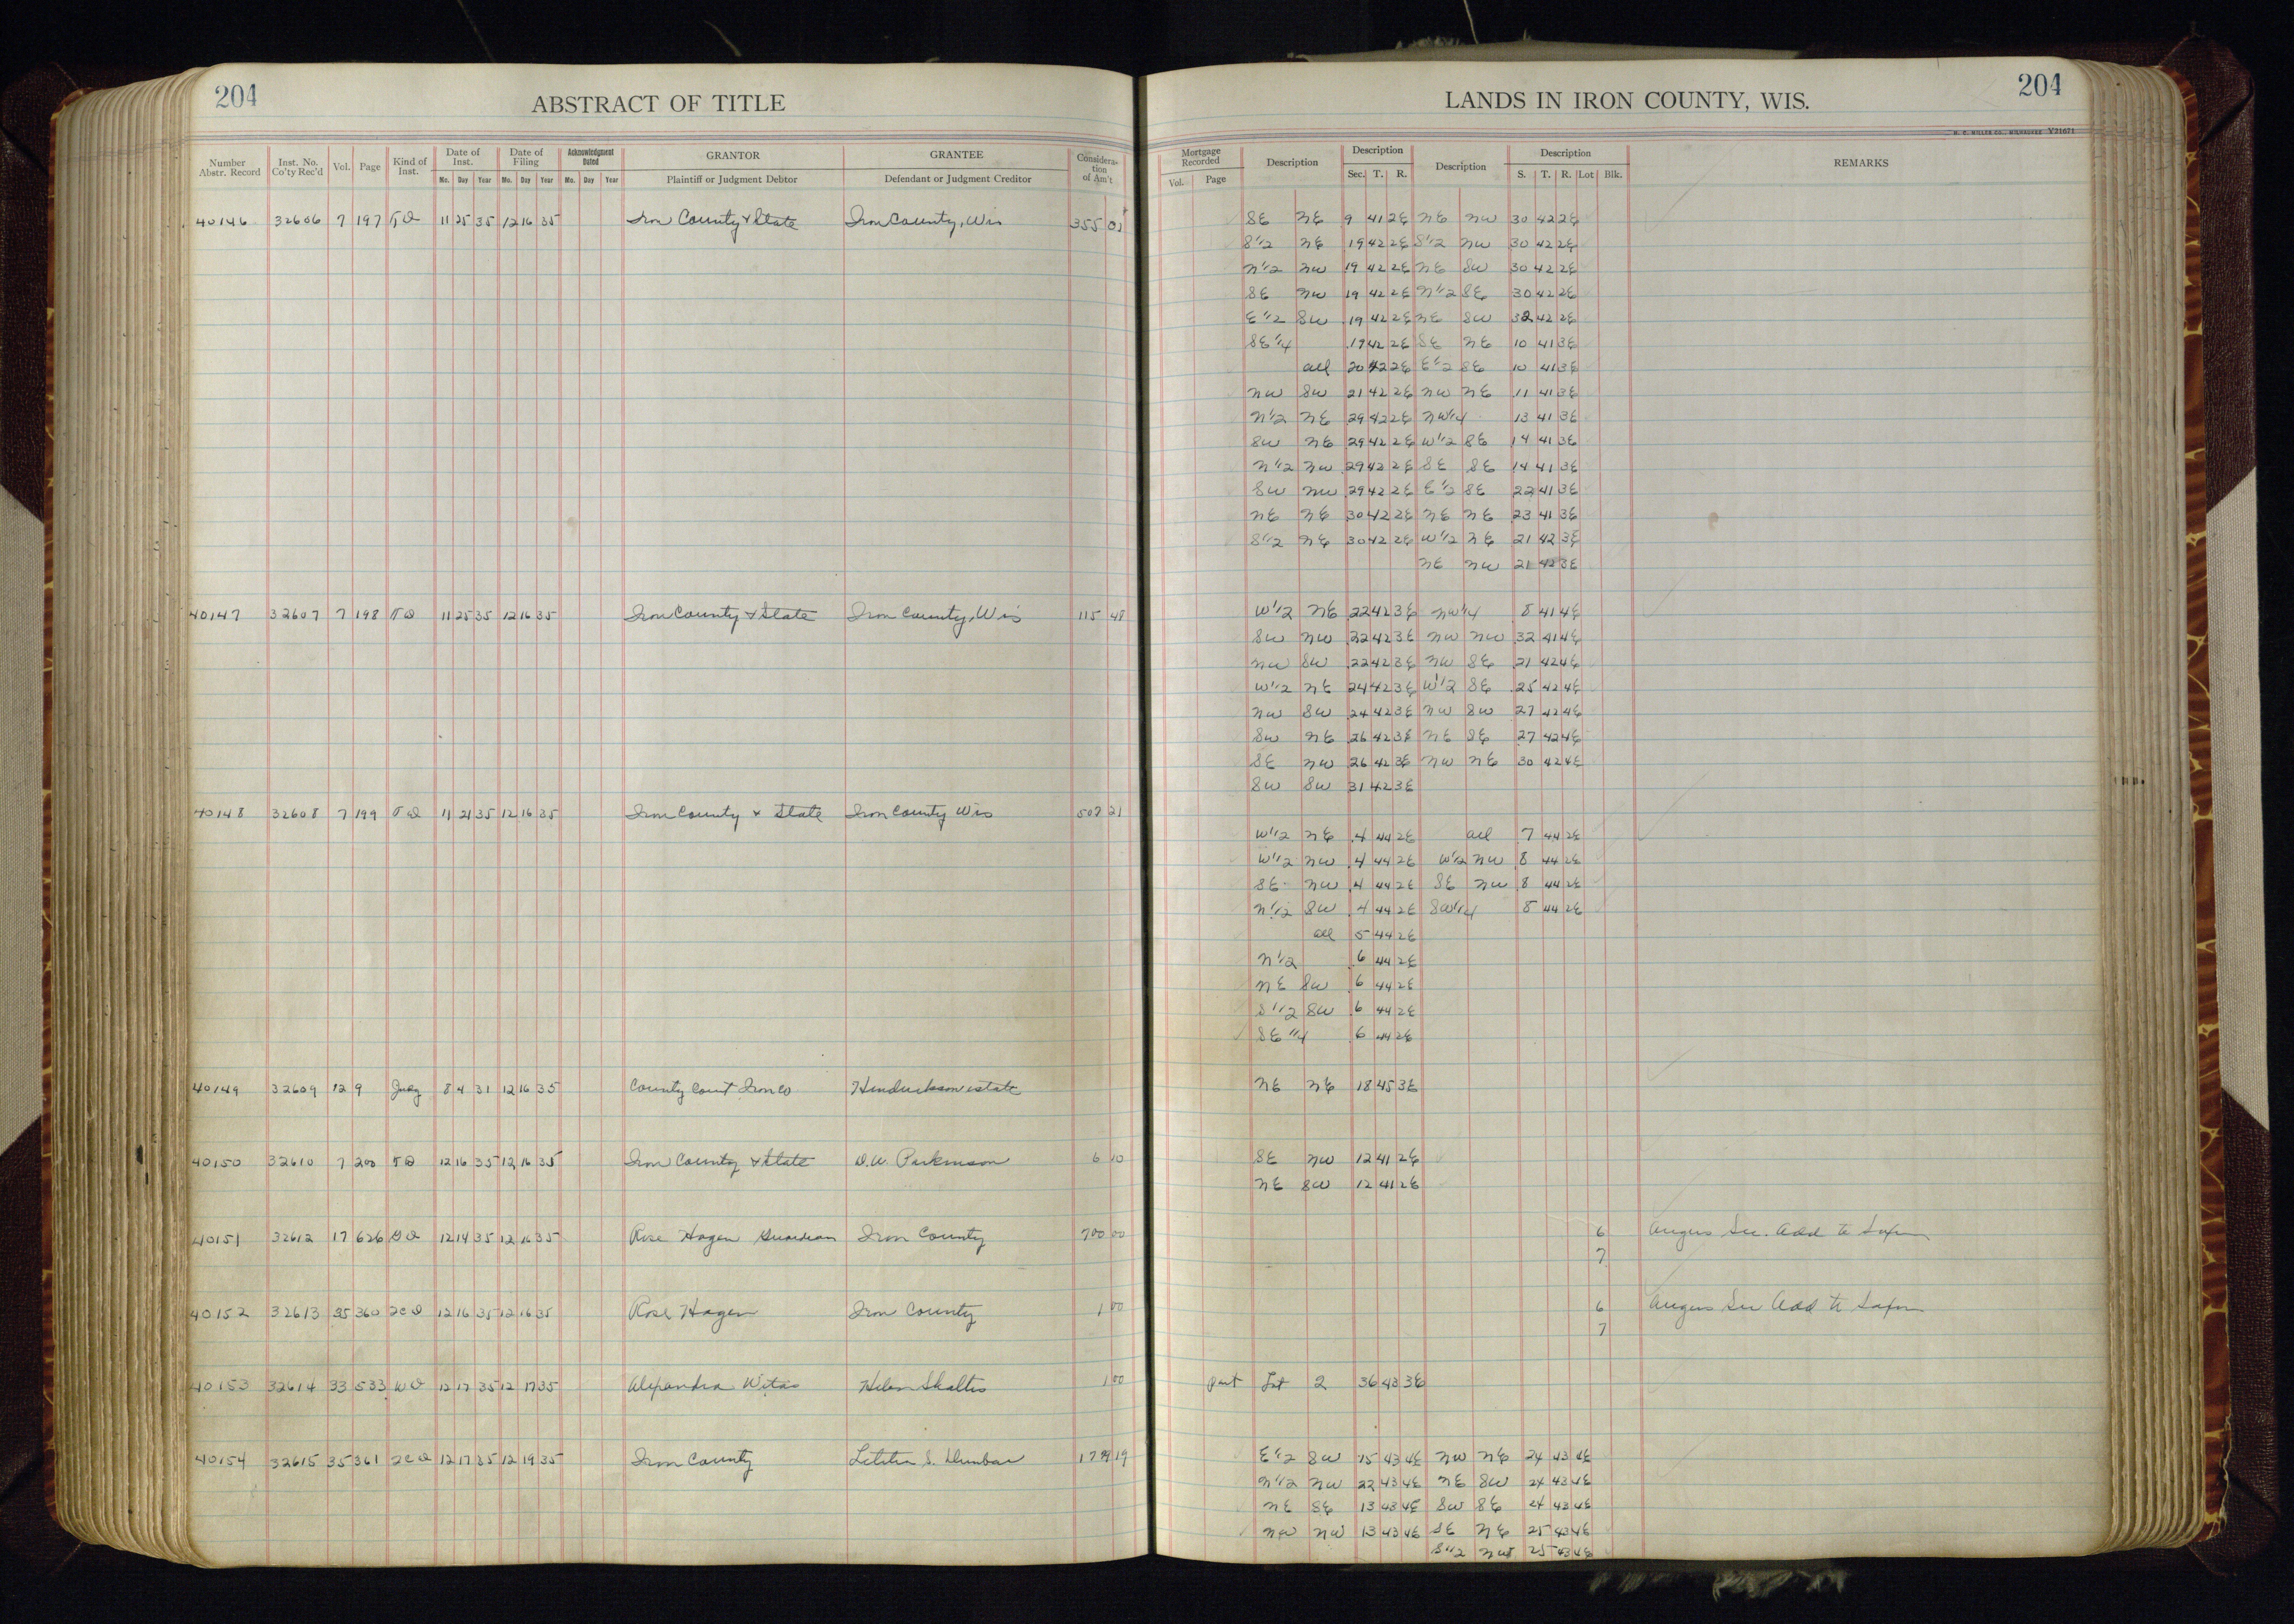 204
ABSTRACT OF TITLE
Number Abstr. Record Inst. No. Co'ty Rec'd Vol. Page Kind of Inst. Date of Inst. Mo. Day Year Date of Filing Mo. Day Year Acknowledgment Dated Mo. Day Year GRANTOR Plaintiff or Judgment Debtor GRANTEE Defendant or Judgment Creditor Considera-tion of Am't
40146 32606 7 197 TD 11 25 35 12 16 35 Iron County & State Iron County, Wis 355
40147 32607 7 198 TD 11 25 35 12 16 35 Iron County & State Iron County, Wis 115 48
40148 32608 7 199 TD 11 21 35 12 16 35 Iron County & State Iron County Wis 507 21
40149 32609 12 9 Judg 8 4 31 12 16 35 County Court Iron Co Hendrickson estate
40150 32610 7 200 TD 12 16 35 12 16 35 Iron County & State D.W. Parkinson 6 10
40151 32612 17 626 GD 12 14 35 12 16 35 Rose Hagen Guardian Iron County 700 00
40152 32613 35 360 QCD 12 16 35 12 16 35 Rose Hagen Iron County 1 00
40153 32614 33 533 WD 12 17 35 12 17 35 Alexandra Witas Helen Shaltis 1 00
40154 32615 35 361 QCD 12 17 35 12 19 35 Iron County Letitia S. Dunbar 19
204
LANDS IN IRON COUNTY, WIS.
H. C. MILLER CO., MILWAUKEE Y21671
Mortgage Recorded Vol. Page Description Description Sec. T. R. Description Description S. T. R. Lot Blk. REMARKS
SE NE 9 41 2E NE NW 30 42 2E
S1/2 NE 19 42 2E S1/2 NW 30 42 2E
N1/2 NW 19 42 2E NE SW 30 42 2E
SE NW 19 42 2E N1/2 SE 30 42 2E
E1/2 SW 19 42 2E NE SW 32 42 2E
SE1/4 19 42 2E SE NE 10 41 3E
all 20 42 2E E1/2 SE 10 41 3E
NW SW 21 42 2E NW NE 11 41 3E
N1/2 NE 29 42 2E NW1/4 13 41 3E
SW NE 29 42 2E W1/2 SE 14 41 3E
N1/2 NW 29 42 2E SE SE 14 41 3E
SW NW 29 42 2E E1/2 SE 22 41 3E
NE NE 30 42 2E NE NE 23 41 3E
S1/2 NE 30 42 2E W1/2 NE 21 42 3E
NE NW 21 42 3E
W1/2 NE 22 42 3E NW1/4 8 41 4E
SW NW 22 42 3E NW NW 32 41 4E
NW SW 22 42 3E NW SE 21 42 4E
W1/2 NE 24 42 3E W1/2 SE 25 42 4E
NW SW 24 42 3E NW SW 27 42 4E
SW NE 26 42 3E NE SE 27 42 4E
SE NW 26 42 3E NW NE 30 42 4E
SW SW 31 42 3E
W1/2 NE 4 44 2E all 7 44 2E
W1/2 NW 4 44 2E W1/2 NW 8 44 2E
SE NW 4 44 2E SE NW 8 44 2E
N1/2 SW 4 44 2E SW1/4 8 44 2E
all 5 44 2E
N1/2 6 44 2E
NE SW 6 44 2E
S1/2 SW 6 44 2E
SE1/4 6 44 2E
NE NE 18 45 3E
SE NW 12 41 2E
NE SW 12 41 2E
6 Angus Sec. Add to Saxon
7
6 Angus Sec Add to Saxon
7
part Lot 2 36 43 3E
E1/2 SW 15 43 4E NW NE 24 43 4E
N1/2 NW 22 43 4E NE SW 24 43 4E
NE SE 13 43 4E SW SE 24 43 4E
NW NW 13 43 4E SE NE 25 43 4E
S1/2 NW 25 43 4E